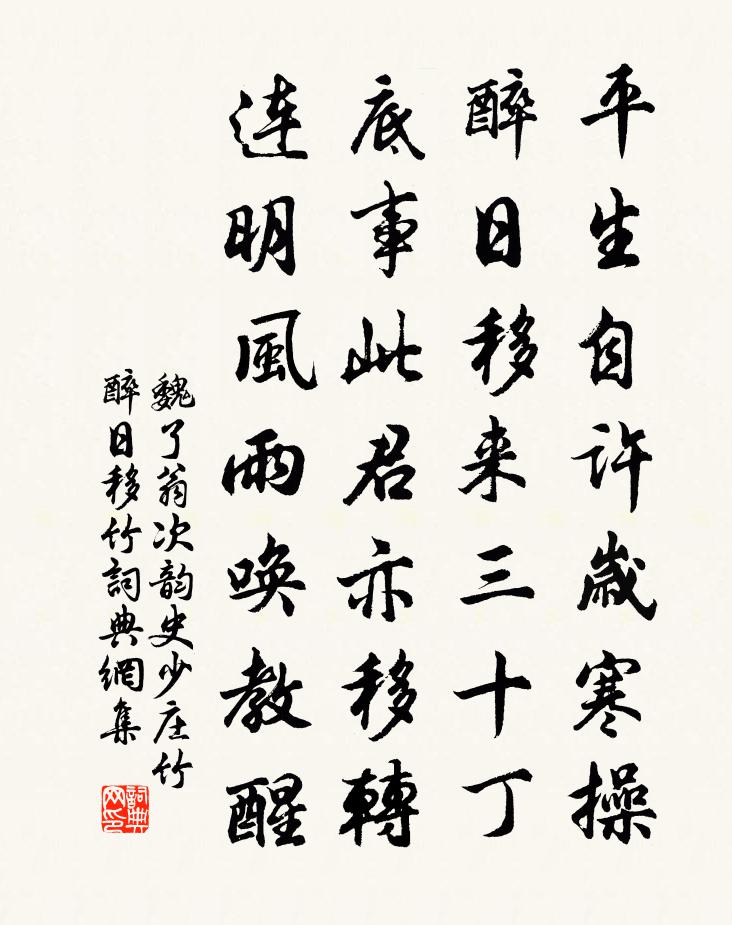 平生自許歲寒操
醉日移来三十丁
底事此君亦移轉
連明風雨喚教醒
魏了翁次韵史少庄竹
醉日移竹詞典網集
詞典网印